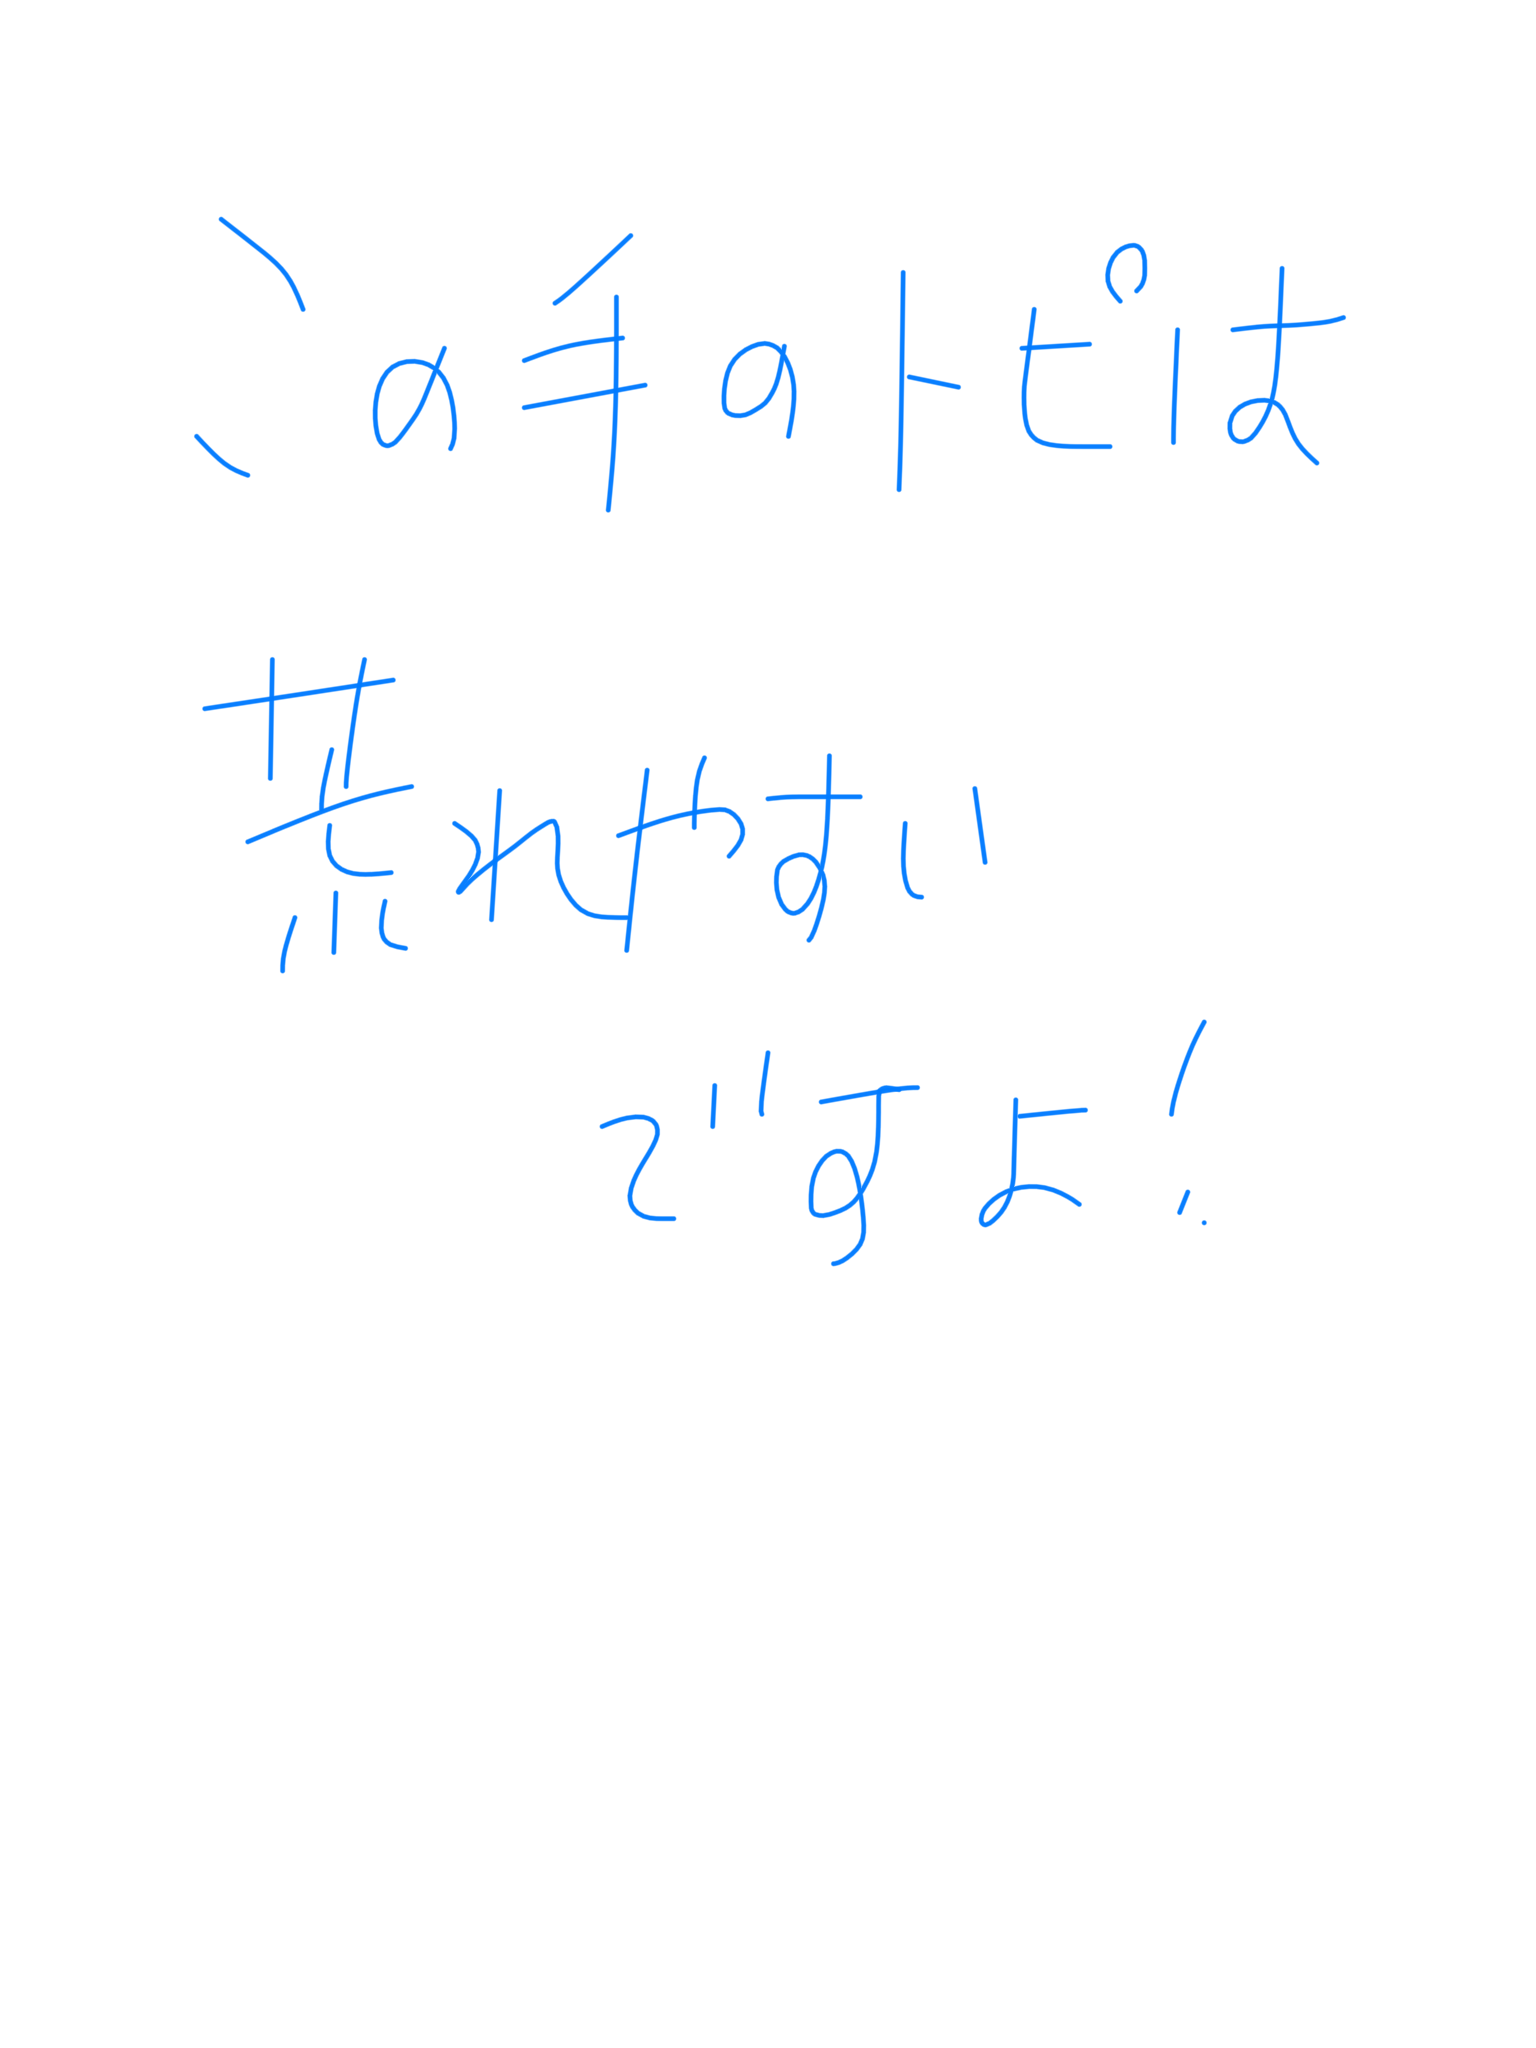 この手のトピは
荒れやすい
ですよ!